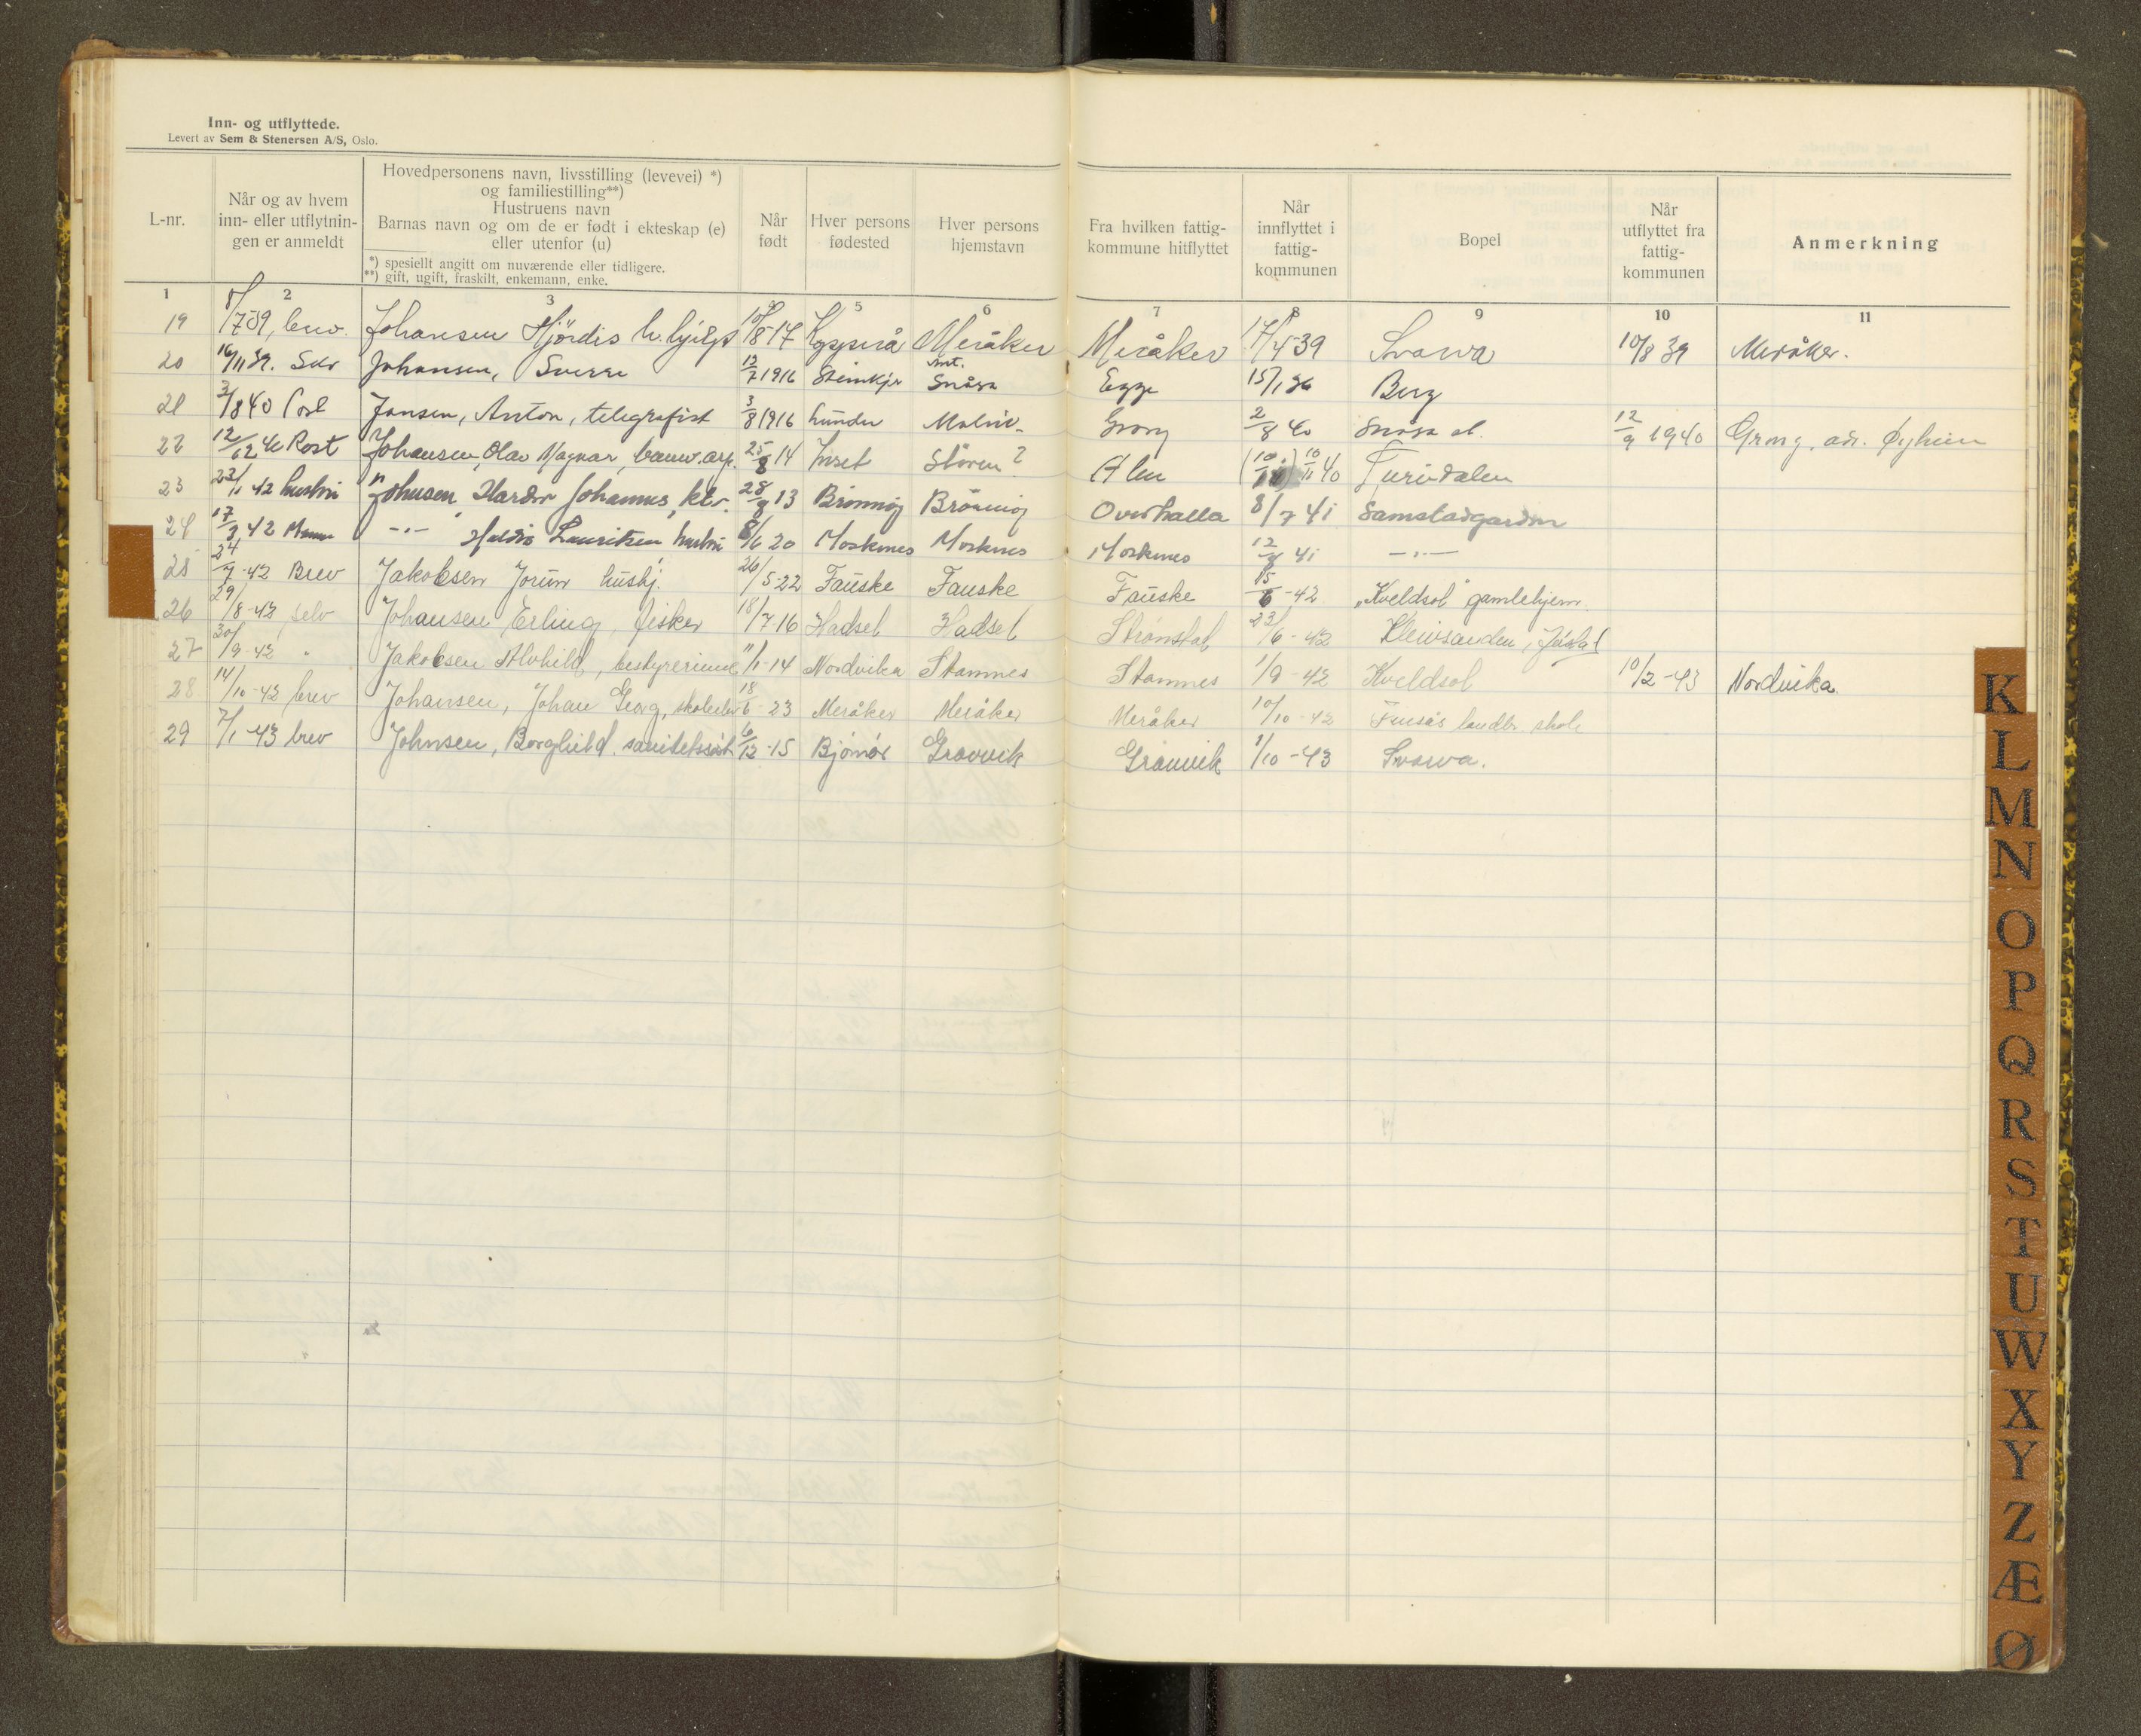 Inn- og utflyttede.
Levert av Sem & Stenersen A/S, Oslo.
L-nr.
Når og av hvem
inn- eller utflytnin-
gen er anmeldt
Hovedpersonens navn, livsstilling (levevei) *)
og familiestilling**)
Hustruens navn
Barnas navn og om de er født i ekteskap (e)
eller utenfor (u)
*) spesiellt angitt om nuværende eller tidligere.
**) gift, ugift, fraskilt, enkemann, enke.
Når
født
Hver persons
fødested
Hver persons
hjemstavn
Fra hvilken fattig-
kommune hitflyttet
Når
innflyttet i
fattig-
kommunen
Bopel
Når
utflyttet fra
fattig-
kommunen
Anmerkning
1 2 3 5 6 7 8 9 10 11
19 8/7-39, Johansen Hjördis 10/8-17 Kopperå Meråker Meråker 17/4-39 10/8 39 Meråker.
20 16/11 39. Johansen, Sverre 12/7 1916 Steinkjer Snåsa Egge 15/1 36 Berg
21 3/8 40 Jansen, Anton, telegrafist 3/8 1916 Malvik Grong 2/8 40 Snåsa st. 12/9 1940 Grong, adr. Øyheim
22 12/12 40 Post Johansen, Olav Magnar, 25/8 14 Inset Støren? Ålen 10/11 40 Turidalen
23 23/1 42 hustru Johnsen, Johannes, 28/8 13 Brönnöy Brönnöy Overhalla 8/7 41 Samstadgarden
24 17/2 42 -"- Lauritsen hustru 8/6 20 Moskenes Moskenes Moskenes 12/8 41 -"-
25 24/7-42 Brev Jakobsen Jorun hushj. 26/5-22 Fauske Fauske Fauske 15/6-42 "Kveldsol" gamlehjem.
26 29/8-42 selv Johansen Erling, fisker 18/7-16 Hadsel Hadsel 23/6-42
27 30/9-42 " Jakobsen Alvhild, bestyrerinne 11/1-14 Nordvika Stamnes Stamnes 1/9-42 Kveldsol 10/2-43 Nordvika
28 14/10-42 brev Johansen, Johan Georg, skoleelev 18/6-23 Meråker Meråker Meråker 10/10-42 Finsås landbr. skole
29 7/1-43 brev Johnsen, Borghild. 6/12-15 Bjömör Gravvik Gravvik 1/10-43
K
L
M
N
O
P
Q
R
S
T
U
W
X
Y
Z
Æ
Ø